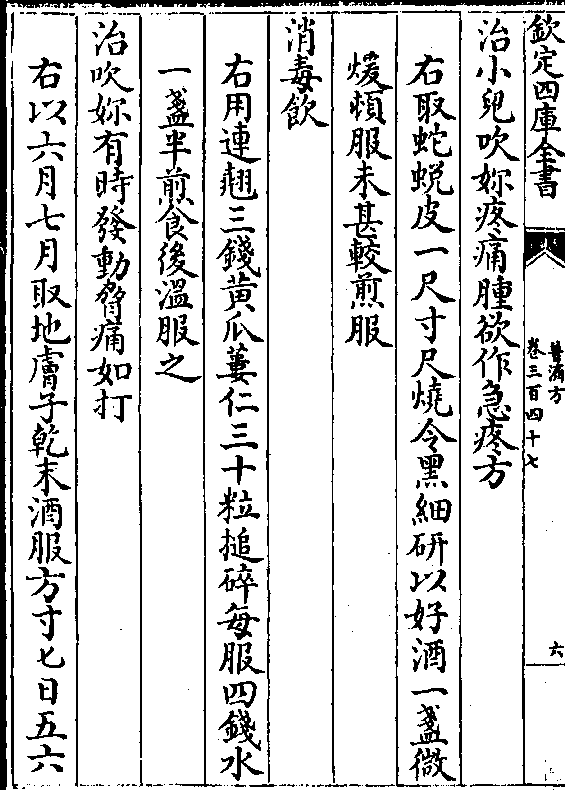 欽定四庫全書
普濟方
卷三百四十七
六
治小兒吹妳疼痛腫欲作急疼方
右取蛇蛻皮一尺寸尺燒令黑細研以好酒一盞微
煖頓服未甚較煎服
消毒飲
右用連翹三錢黄瓜蔞仁三十粒搥碎每服四錢水
一盞半煎食後溫服之
治吹妳有時發動脅痛如打
右以六月七月取地膚子乾末酒服方寸匕日五六